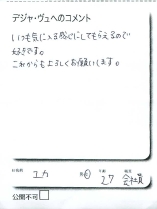 デジャ・ヴュへのコメント
いつも気に入る感じにしてもらえるので
好きです。
これからもよろしくお願いします。
エカ 27 会社員
公開不可